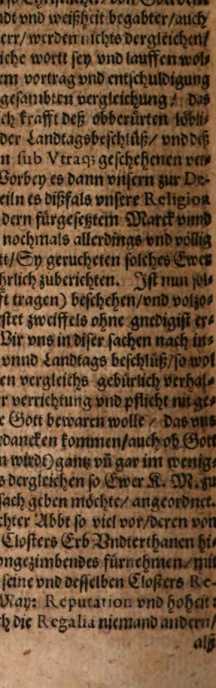 dt vnd weißheit begabter/auch
err/werden nichts dergleichen/
iche wort sey vnd lauffen wol-
em vortrag vnd entschuldigung
gesambten vergleichung / das
ch krafft deß obberürten löbli-
der Landtagsbeschlüß/ vnd deß
n sub Vtraq; geschehenen ver-
Vorbey es dann vnsern zur De-
eiln es dißfals vnsere Religion
dern fürgesetztem Marck vnnd
nochmals allerdings vnd völlig
t/Sy gerucheten solches Ewer
hrlich zuberichten. Ist nun sol-
ft tragen) beschehen/vnd volzo-
stet zweiffels ohne gnedigist er-
Wir vns in diser sachen nach in-
vnnd Landtags beschlüß/so wol
en vergleichs gebürlich verhal-
r verrichtung vnd pflicht nit ge-
e Gott bewaren wolle / das vns
dancken kommen/auch ob Gott
n wirdt)gantz vn̄ gar im wenig-
s dergleichen so Ewer K. M. zu
sach geben möchte/ angeordnet.
chter Abbt so viel vor/deren von
Closters Erb Vndterthanen hi-
ongezimbendes fürnehmen/mit
seine vnd desselben Closters Re-
May: Reputation vnd hoheit :
ch die Regalia niemand andern/
als